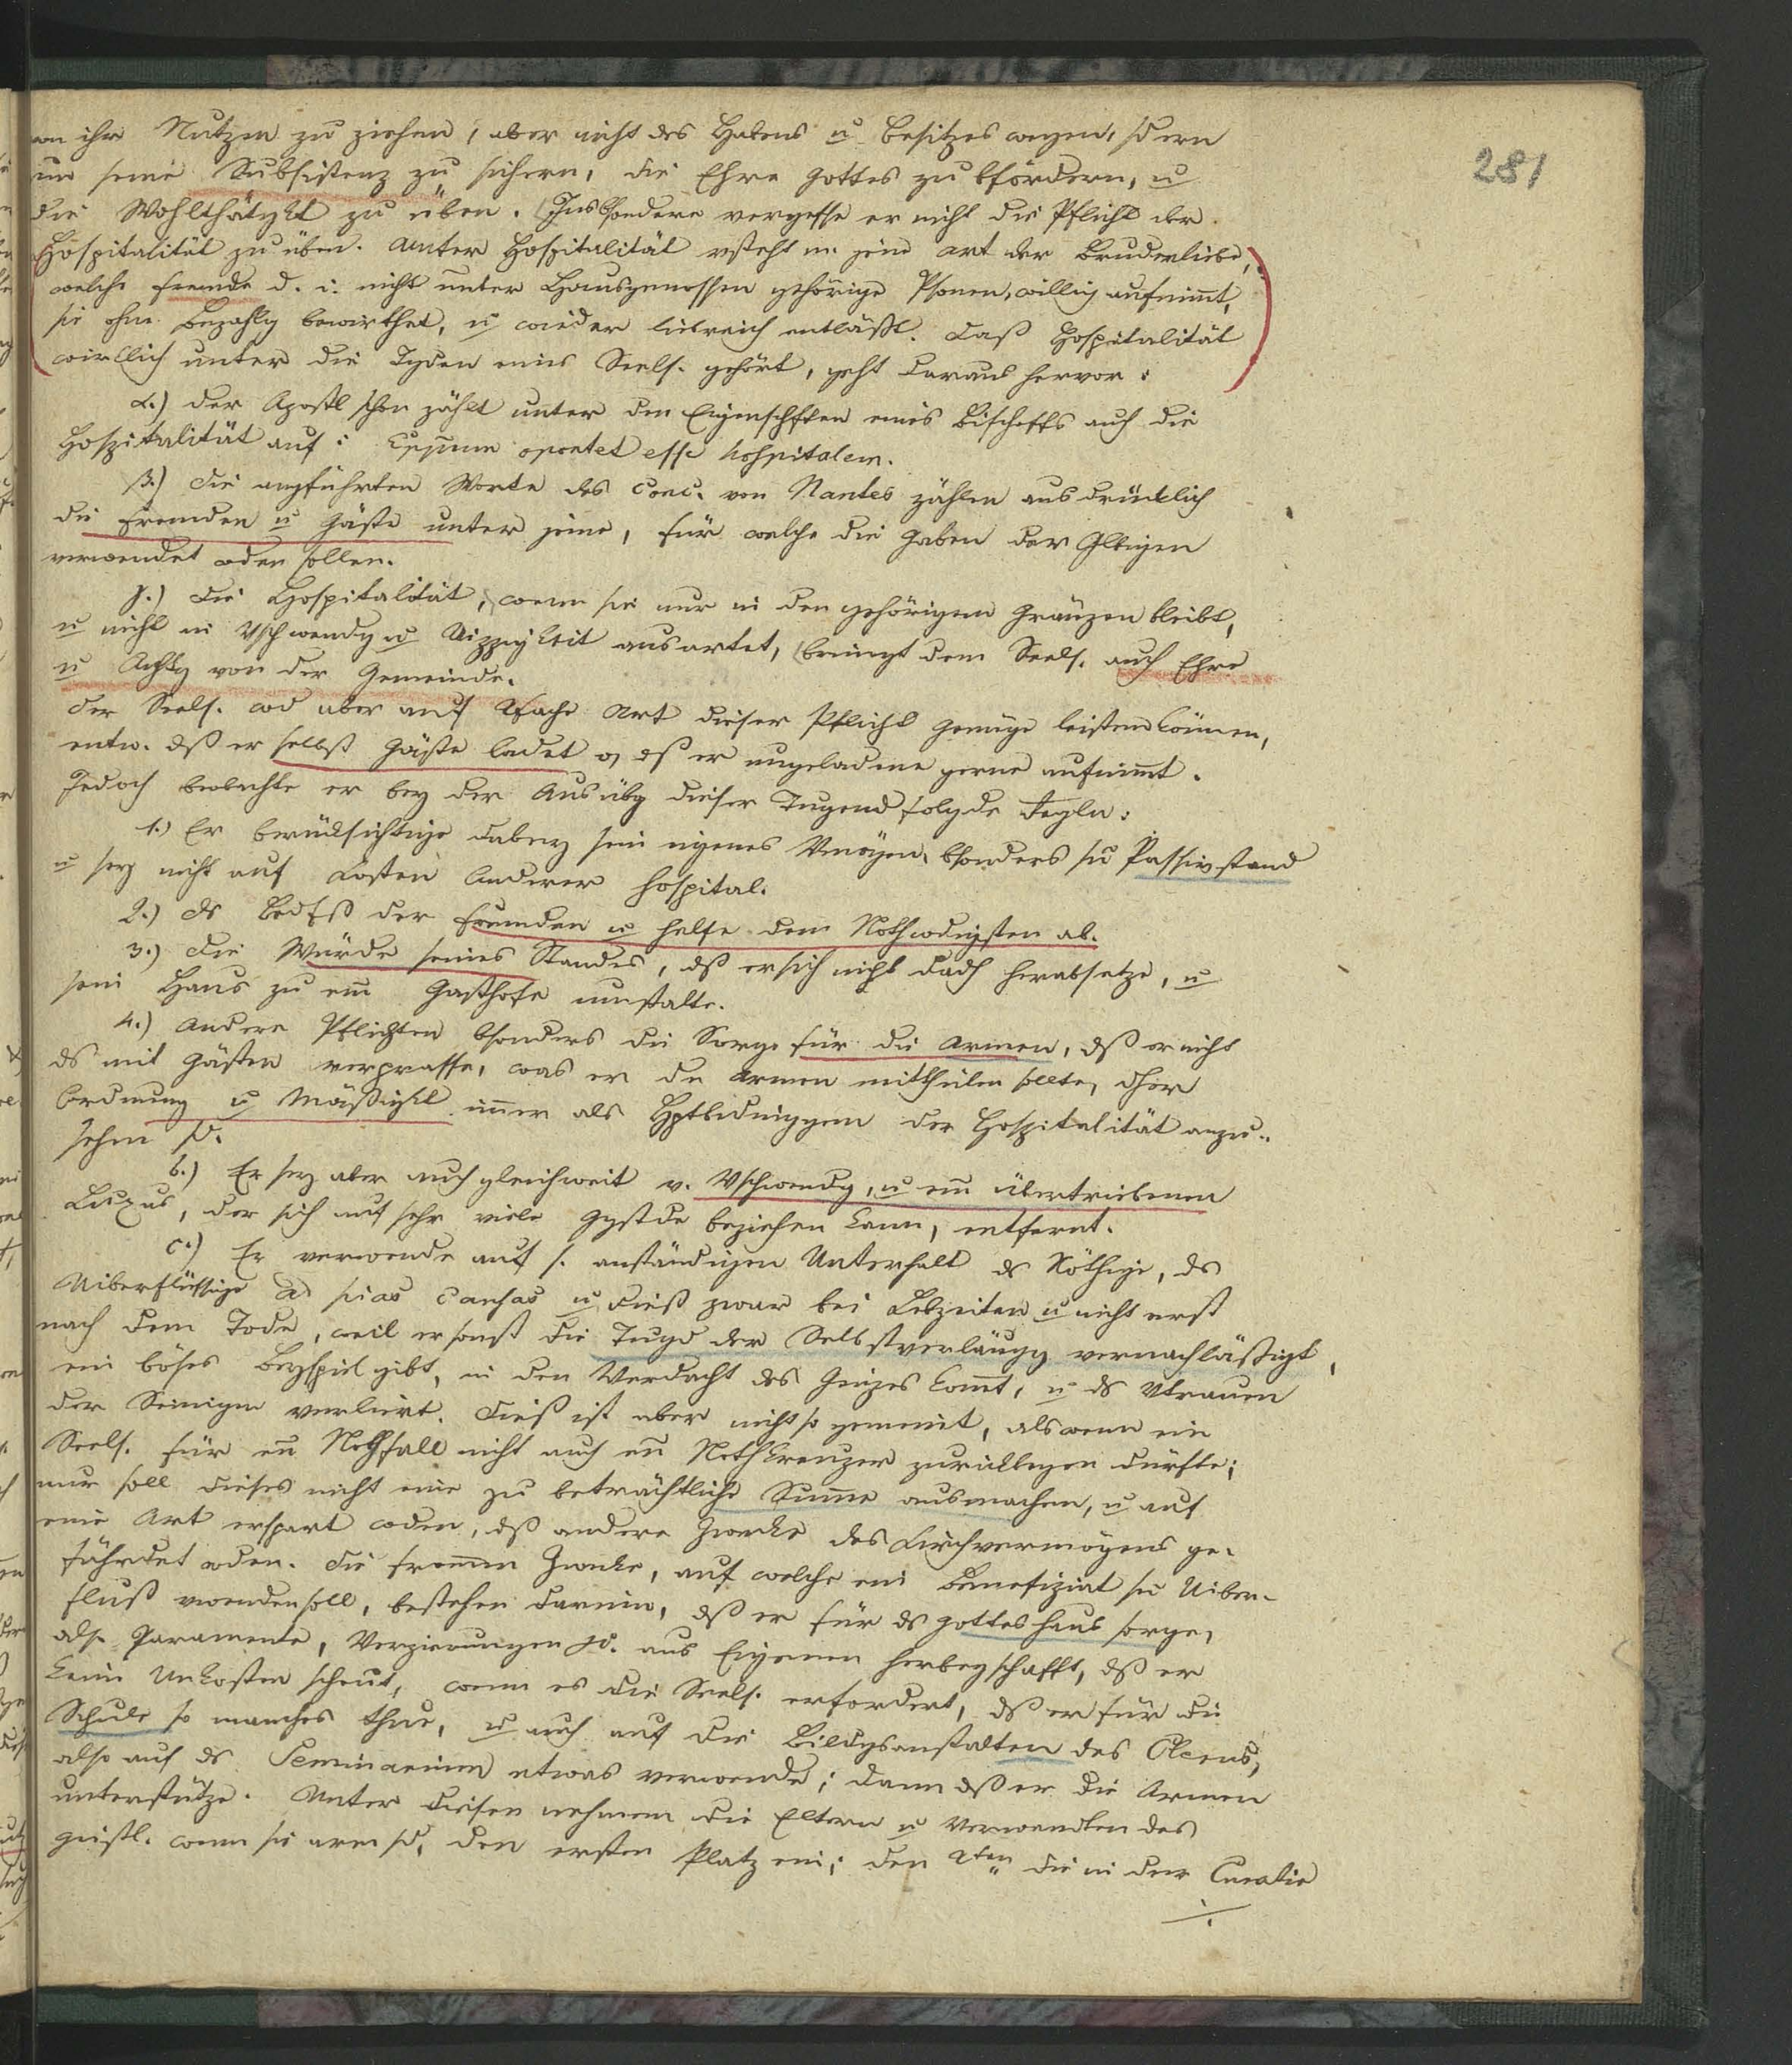 281
von ihr Nutzen zu ziehen, aber nicht des Habens u Besitzes wegen, sdern
um seine Subsistenz zu sichern, die Ehre Gottes zu bfördern, u
die Wohlthätgkt zu üben. Insbsondere vergesse er nicht die Pflicht der
Hospitalität zu üben. Unter Hospitalität vsteht m. jene Art der Bruderliebe,
welche Fremde d. i. nicht unter Hausgenossen gehörige Psonen, willig aufnimt,
sie ohne Bezahlg bewirthet, u wieder liebreich entläßt. Daß Hospitalität
wirklich unter die Tgden eines Seels. gehört, geht daraus hervor:
α.) Der Apostl schon zählt unter den Eigenschften eines Bischoffs auch die
Hospitalität auf: oportet esse hospitalem.
β.) Die angführten Worte des Conc. von Nantes zählen ausdrücklich
die Fremden u Gäste unter jene, für welche die Gaben der Glbigen
verwendet wden sollen.
γ.) Die Hospitalität, wenn sie nur in den gehörigen Gränzen bleibt,
u nicht in Vschwendg u Uippigkeit ausartet, bringt dem Seels. auch Ehre
u Achtg von der Gemeinde.
Der Seels. wd aber auf 2fache Art dieser Pflicht Genüge leisten können,
entw. dß er selbst Gäste ladet o dß er ungeladene gerne aufnimt.
Jedoch beobachte er bey der Ausübg dieser Tugend folgde Regln:
1.) Er berücksichtige dabey sein eigenes Vmögen, bsonders sn Passivstand
u sey nicht auf Kosten Anderer hospital.
2.) Ds Bedfß der Fremden u helfe dem Nothwdigsten ab.
3.) Die Würde seines Standes, dß er sich nicht dadch herabsetze, u
sein Haus zu em Gasthofe umstalte.
4.) Andere Pflichten bsonders die Sorge für die Armen, dß er nicht
ds mit Gästen verprasse, was er den Armen mittheilen sollte, dher
Ordnung u Mäßigkt immer als Hptbedinggen der Hospitalität anzu-
sehen sd.
b.) Er sey aber auch gleichweit v. Vschwendg, u em übertriebenen
Luxus, der sich auf sehr viele Ggstde beziehen kann, entfernt.
c.) Er verwende auf s. anständigen Unterhalt ds Nöthige, ds
Uiberflüssige ad pias causas u dieß zwar bei Lebzeiten u nicht erst
nach dem Tode, weil er sonst die Tugd der Selbstverläugg vernachläßigt,
ein böses Beyspiel gibt, in den Verdacht des Geizes komt, u ds Vtrauen
der Seinigen verliert. Dieß ist aber nicht so gemeint, als wenn ein
Seels. für en Nothfall nicht auch en Nothkreuzer zurücklegen dürfte;
nur soll dieses nicht eine zu beträchtliche Summe ausmachen, u auf
eine Art erspart wden, dß andere Zwecke des Kirchvermögens ge-
fährdet wden. Die frommen Zwecke, auf welche ein Benefiziat sn Uiber-
fluß vwenden soll, bestehen darinn, dß er für ds Gotteshaus sorge,
als Paramente, Verzierungen etc. aus Eigenem herbeyschafft, dß er
keine Unkosten scheut, wenn es die Seels. erfordert, dß er für die
Schule so manches thue, u auch auf die Bildgsanstalten des Clerus,
also auf ds Seminarium etwas verwende; dann dß er die Armen
unterstütze. Unter diesen nehmen die Eltern u Verwandten des
Geistl. wenn sie arm sd, den ersten Platz ein; den 2ten die in der Curatie